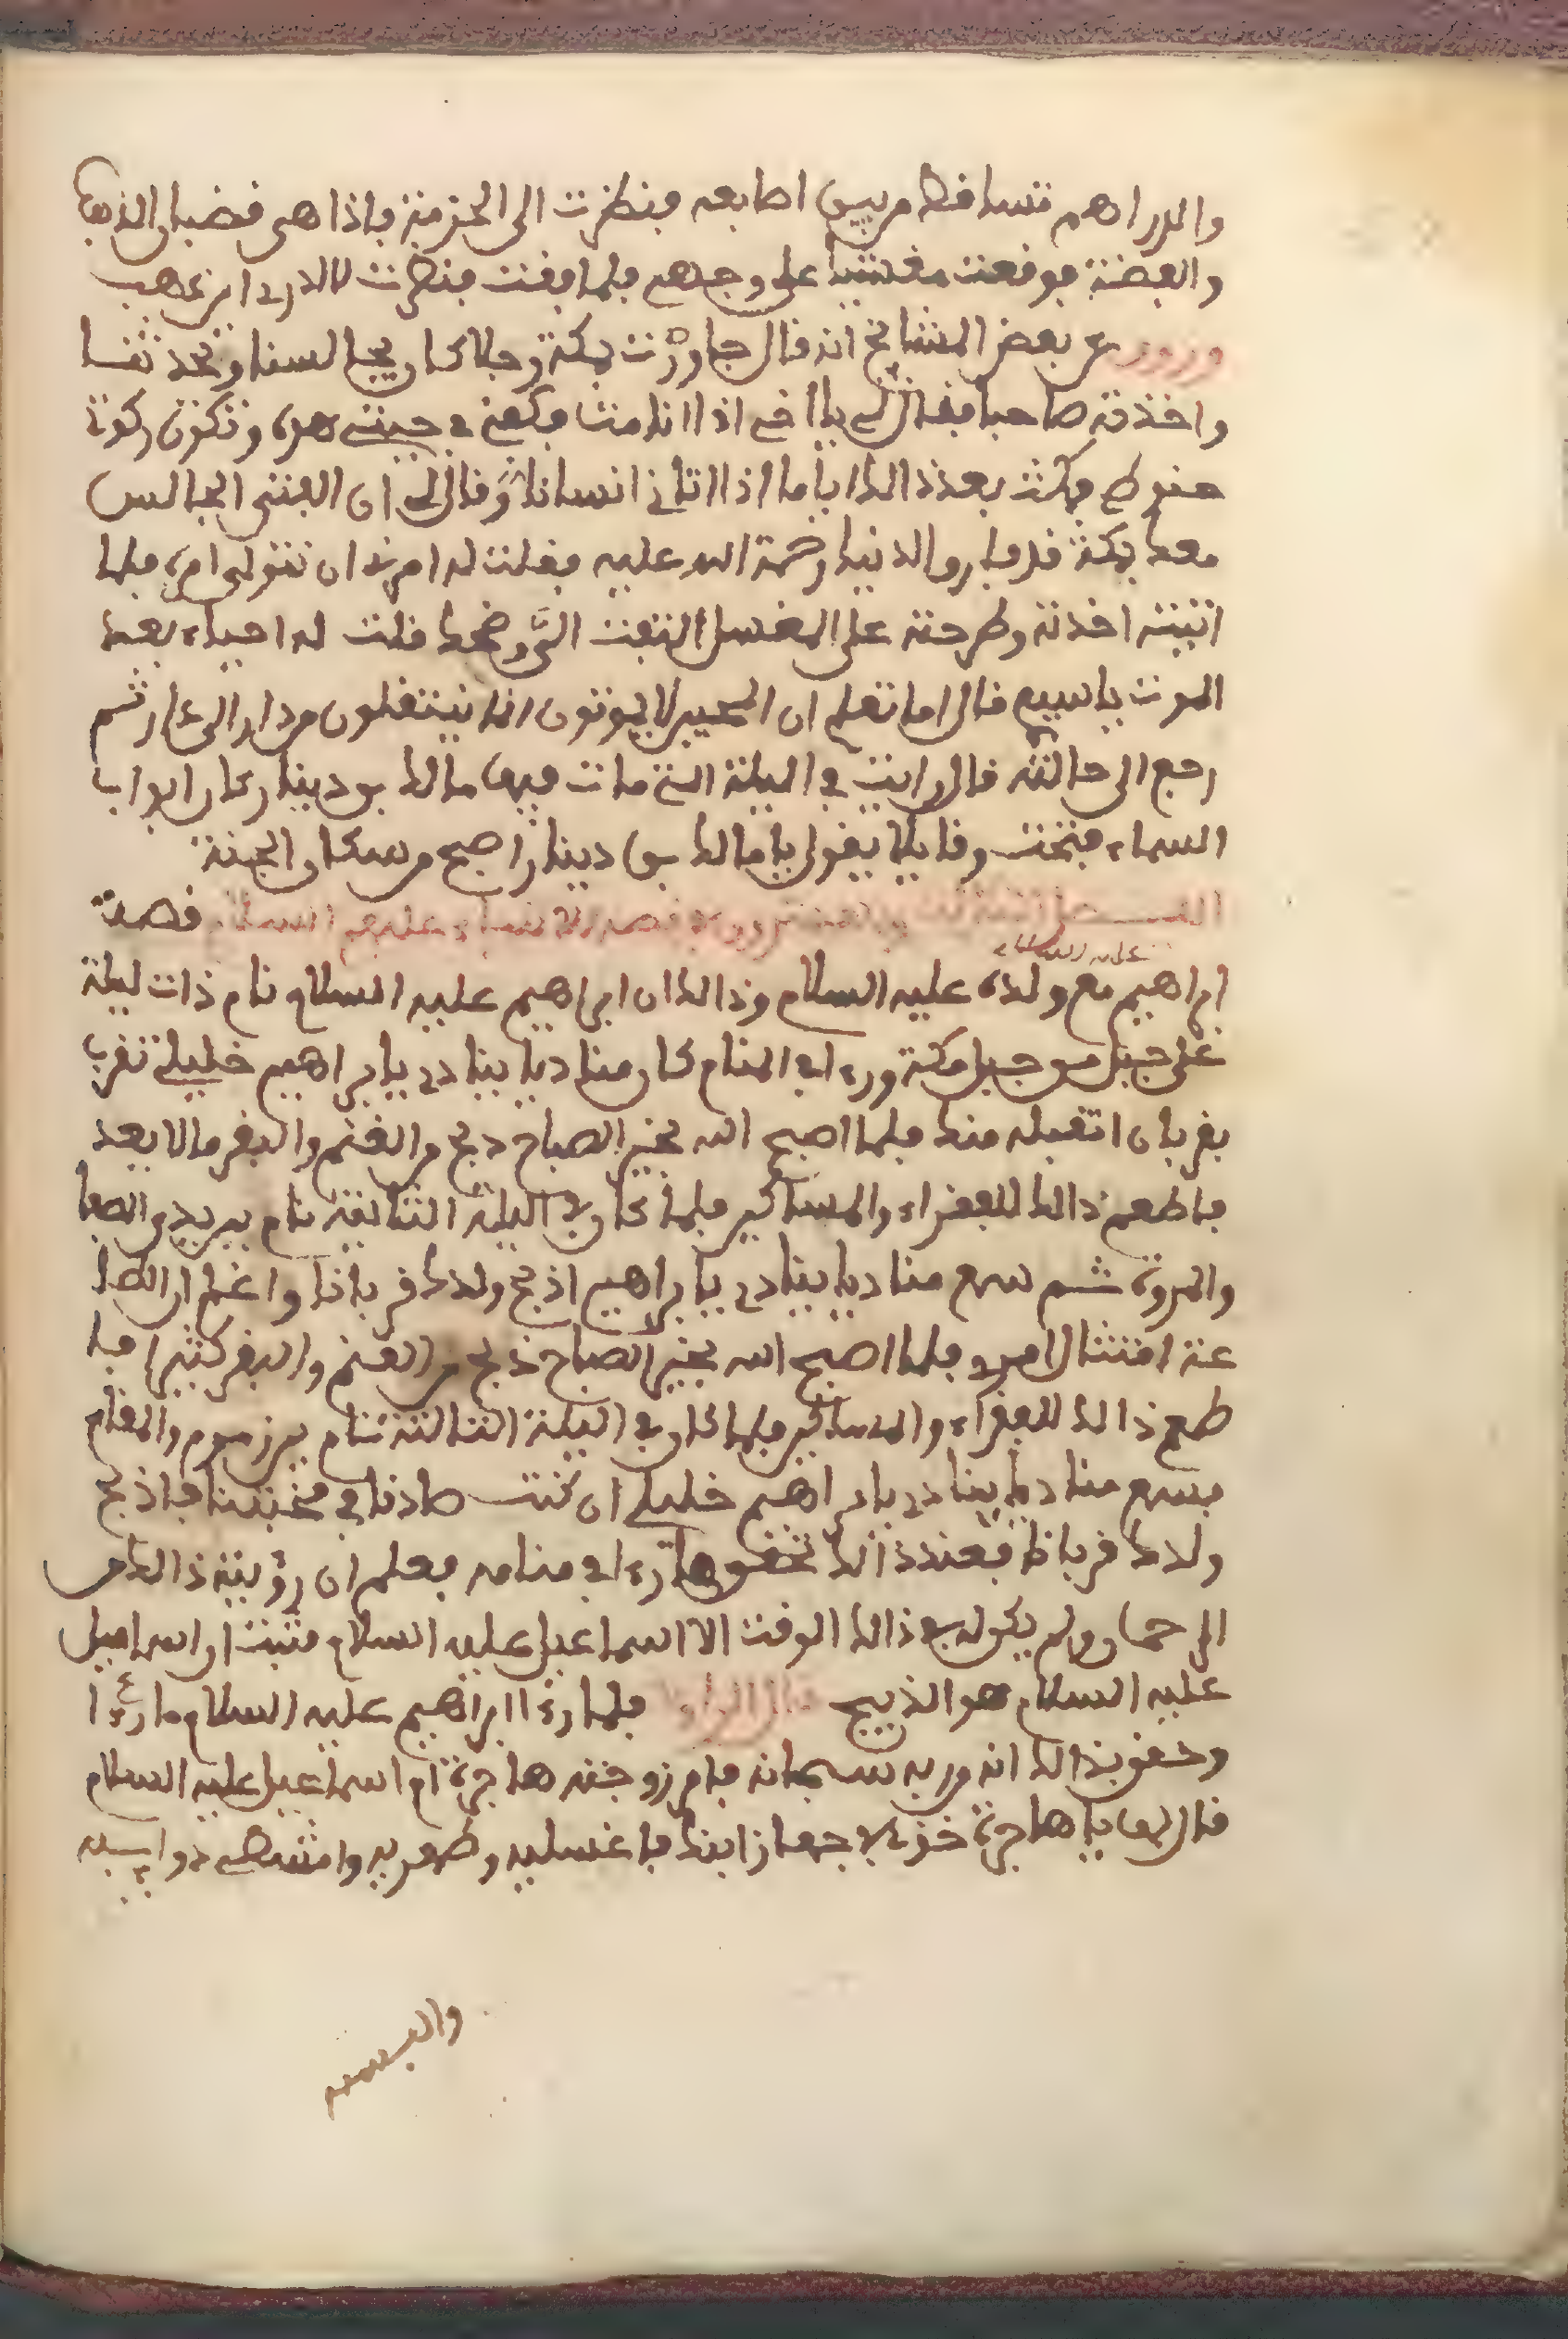 والدراهم تتساقط من بين اصابعه فنظرت الى الحزمة فاذا هي قضبان الذهب
والفضة فوقعت مغشيا على وجهي فلما افقت فنظرت فلا ادري اين ذهب
وروي عن بعض المشائخ انه قال جاورت بمكة رجلا كان يجالسنا ويحدثنا
واخذته صاحبا فقال لي يا اخي اذا انا مت فكفني في جبتي هذه وتكون ركوة
حنوطي فمكثت بعد ذالك اياما اذا اتاني انسانا وقال لي ان الفتى الجالس
معك بمكة قد فارق الدنيا رحمة الله عليه فقلت له امرني ان نتولى امره فلما
اتيته اخذته وطرحته على المغسل التفت الي وضحك قلت له احياء بعد
الموت يا سيدي قال اما تعلم ان المحبين لا يموتون انما ينتقلون من دار الى دار ثم
رجع الى حالته قال رايت في اليلة التي مات فيها مالك بن دينار كان ابواب
السماء فتحت وقايلا يقول يا مالك بن دينار اصبح من سكان الجنة
الفصل الثالث في قصص الانبياء عليهم السلام قصة
عليه السلام
ابراهيم مع ولده عليه السلام وذالك ان ابراهيم عليه السلام نام ذات ليلة
على جبل من جبل مكة ورءا في المنام كان مناديا ينادي يا ابراهيم خليلي تقرب
بقربان اتقبله منك فلما اصبح الله بخير الصباح ذبح من الغنم والبقر ما لا يعد
فاطعم ذالك للفقراء والمساكين فلما كان في اليلة الثانية نام بين يدي الصفا
والمروة ثم سمع مناديا ينادي يا ابراهيم اذبح ولدك قربانا واغلم ان الطا
عة امتثال امري فلما اصبح الله بخير الصباح ذبح من الغنم والبقر كثيرا فا
طعم ذالك للفقراء والمساكين فلما كان في اليلة الثالثة نام بين زمزم والمقام
فسمع مناديا ينادي يا ابراهيم خليلي ان كنت صادقا في محبتنا فاذبح
ولدك قربانا فعند ذالك تحقق ها رءا في منامه فعلم ان رؤيته ذالك من
الرحمان ولم يكن له في ذالك الوقت الا اسماعيل عليه السلام فثبت ان اسماعيل
عليه السلام هو الذبيح قال الراوي فلما رءا ابراهيم عليه السلام ما رءا
وحقق بذالك انه من ربه سبحانه فامر زوجته هاجرة ام اسماعيل عليه السلام
قال لها يا هاجرة خذي في جهاز ابنك فاغسليه وطهريه وامشطي ذوايبه
والبسيه